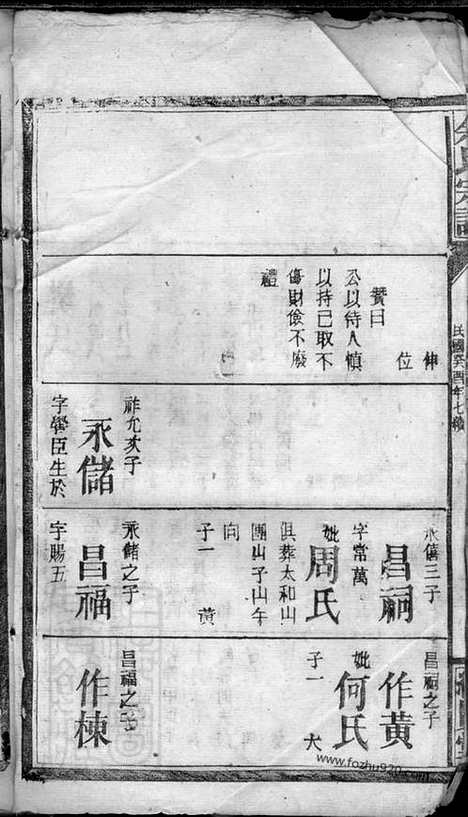 氏宗譜
民國癸酉年七續
伸
位
贊曰
公以待人慎
以持已取不
傷財儉不廢
禮
祚允次子
永儲
字學臣生於
永僖三子
昌嗣
字常萬
妣
周氏
俱葬太和山
團山子山午
向
子一 黃
永儲之子
昌福
字賜五
昌嗣之子
作黃
妣
何氏
子一 大
昌福之子
作棟
www.fozhu920.com